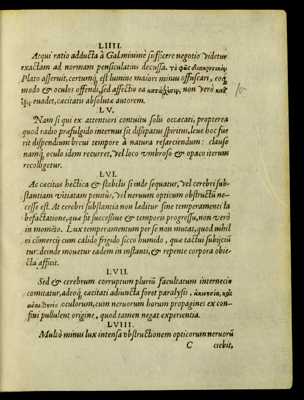 LIIII.
Atqui ratio adducta à Gal. minimè sufficere negotio videtur
exactam ad normam pensiculatius decussa. τὸ φῶς διακριτικὸν
Plato asseruit, certumq́; est lumine maiori minus offuscari, eoq́;
modo & oculos offendi, sed affectu ea non verò
euadet, cæcitatis absolutæ autorem.
LV.
Nam si qui ex attentiori contuitu solis occæcati, propterea
quod radio præfulgido internus sit dissipatus spiritus, leue hoc fue
rit dispendium breui tempore à natura resarciendum: clauso
namq́; oculo idem recurret, vel loco vmbroso & opaco iterum
recolligetur.
LVI.
Ac cæcitas hectica & stabilis si inde sequatur, vel cerebri sub-
stantiam vitiatam penitus, vel neruum opticum obstructū ne-
cesse est. At cerebri substantia non læditur sine temperamenti la
befactatione, quæ fit successiuè & temporis progressu, non verò
in momēto. Lux temperamentum per se non mutat, quod nihil
ei cōmercij cum calido frigido sicco humido, quæ tactui subjectū
tur: deinde mouetur eadem in instanti, & repente corpora obie-
cta afficit.
LVII.
Sed & cerebrum corruptum plurium facultatum internecio
comitatur, adeoq́; cæcitati adiuncta foret paralysis, ἀκινησία, καὶ
oculorum, cum neruorum horum propagines ex con-
finij pullulent origine, quod tamen negat experientia.
LVIII.
Multò minus lux intensa obstructionem opticorum neruorū
C ciebit,